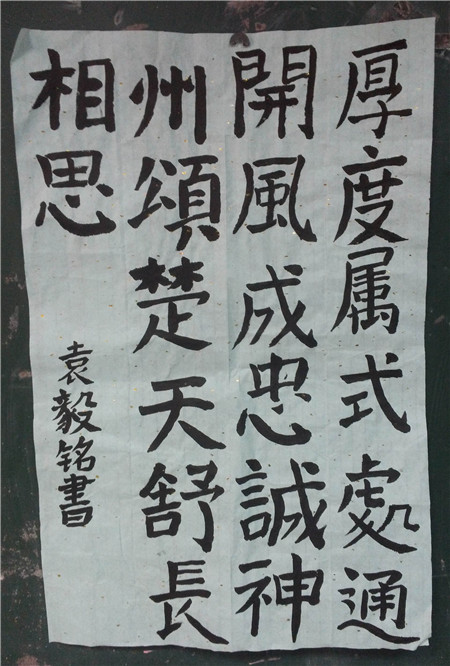 厚度属式處通
開風成忠誠神
州頌楚天舒長
相思
袁毅铭書